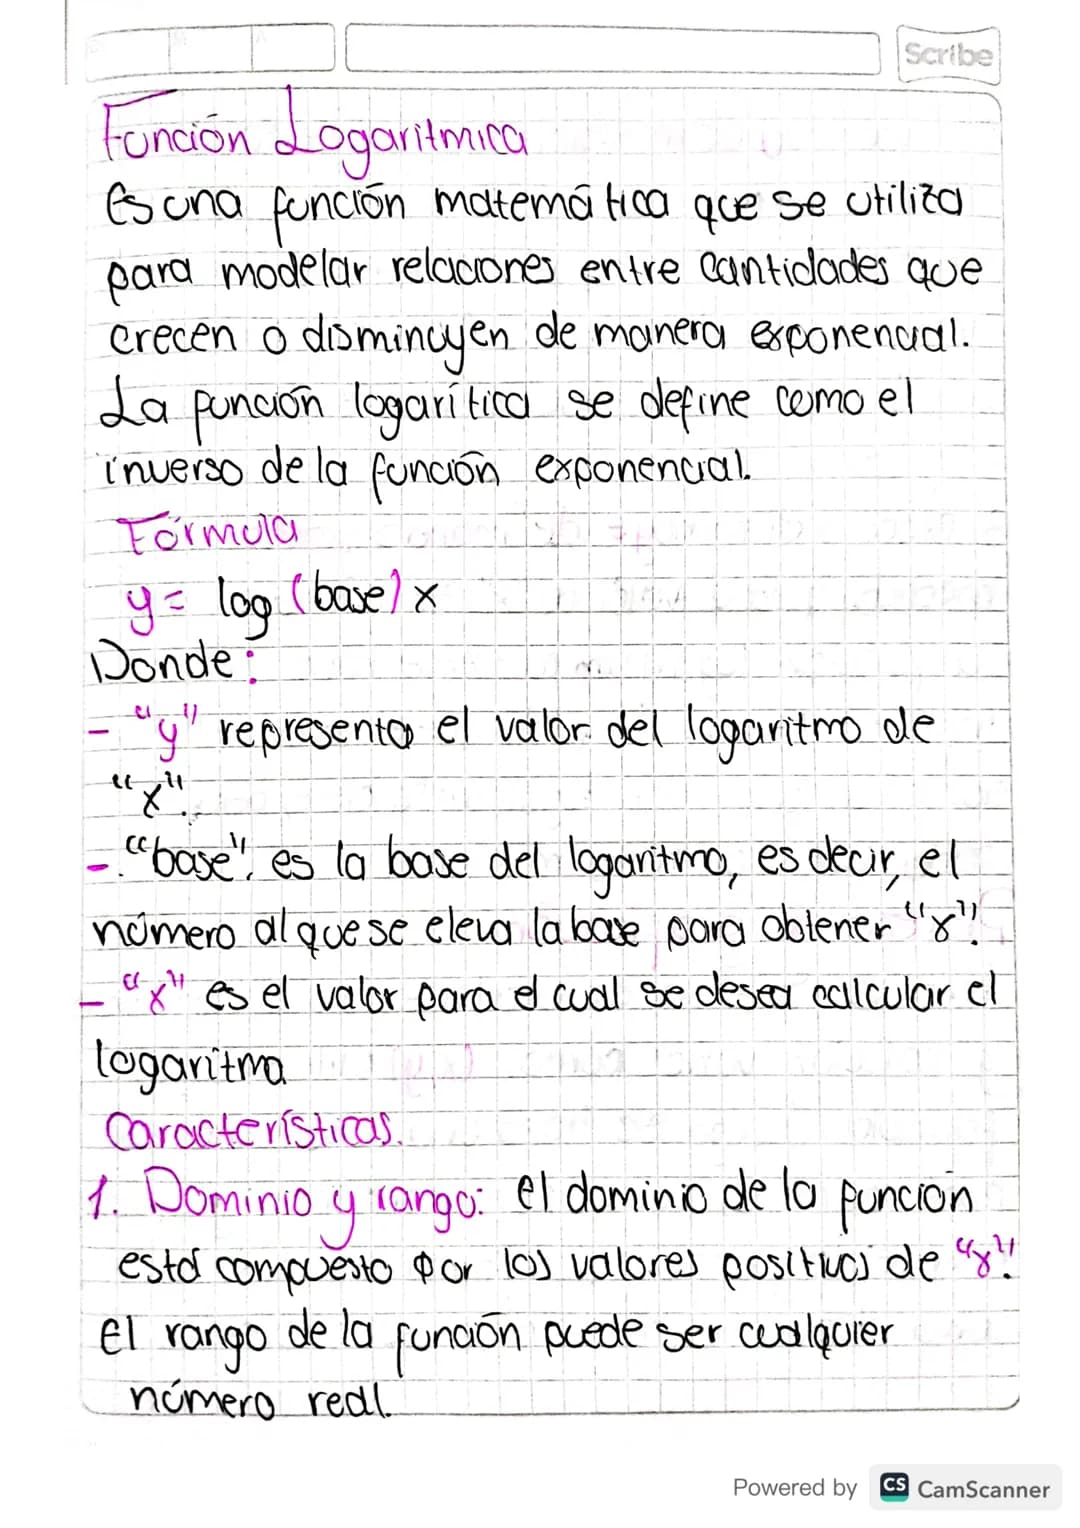 Scribe
Función Logaritmica
Es una función matemática que se utiliza
para modelar relaciones entre cantidades que
crecen o disminuyen de manera exponencial.
La función logarítica se define como el
inverso de la función exponencial.
Fórmula
y= log (base) x
Donde:
- "y" representa el valor del logaritmo de
"x".
- "base", es la base del logaritmo, es decir, el
número al que se eleva la base para obtener "x".
- "x" es el valor para el cual se desea calcular el
logaritmo
Características.
1. Dominio y rango: el dominio de la función
está compuesto por los valores positivos de "x".
El rango de la función puede ser cualquier
número real.
Powered by CS CamScanner